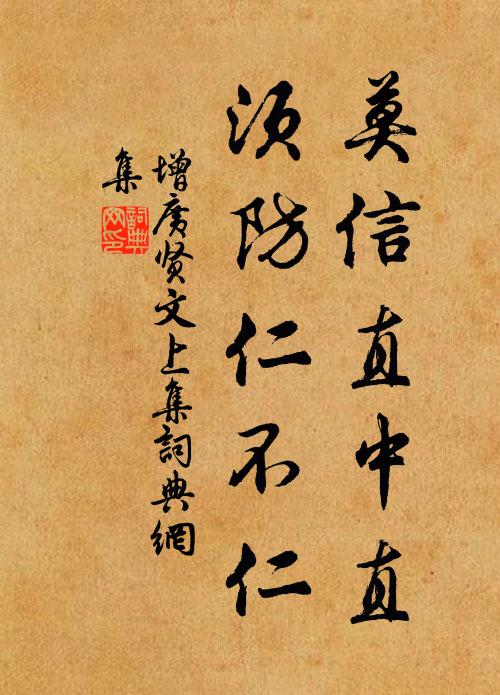 莫信直中直
须防仁不仁
增广贤文上集詞典網
集
詞典
网印